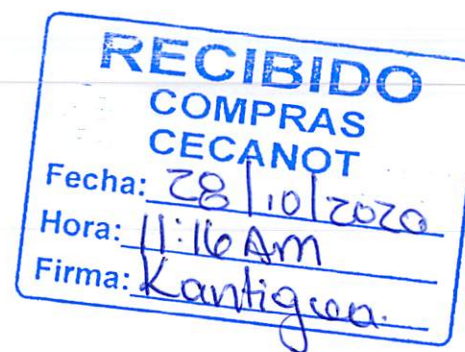 RECIBIDO
COMPRAS
CECANOT
Fecha: 28/10/2020
Hora: 11:16 AM
Firma: Kantigua.